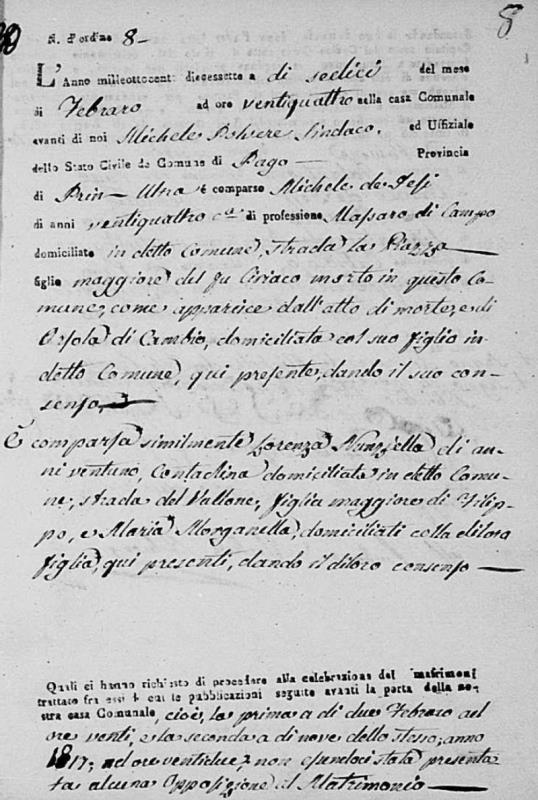 8
N. d'ordine 8-
L'Anno milleottocent diecessette a di sedici del mese
di Febraro ad ore ventiquattro nella casa Comunale
avanti di noi Michele Sindaco, ed Uffiziale
dello Stato Civile de Comune di Pago — Provincia
di Prin— Ultra è comparso Michele de Jesi
di anni ventiquattro di professione Massaro di Campo
domiciliato in detto Comune, strada la Piazza —
figlio maggiore del fu Ciriaco morto in questo Co-
mune, come apparisce dall'atto di morte, e di
Orsola di Cambio, domiciliata col suo figlio in
detto Comune, qui presente, dando il suo con-
senso,
È comparsa similmente Lorenza Nunziella di an-
ni ventuno, Contadina domiciliata in detto Comu-
ne, strada del Vallone, figlia maggiore di Filip-
po, e Maria Morganella, domiciliati colla di loro
figlia, qui presenti, dando il di loro consenso —
Quali ci hanno richiesto di procedere alla celebrazione del matrimoni
trattato fra essi è cui le pubblicazioni seguite avanti la porta della no-
stra casa Comunale, cioè, la prima a di due Febraro ad
ore venti, e la seconda a di nove dello stesso, anno
1817; ad ore ventidue non essendoci stata presenta-
ta alcuna Opposizione al Matrimonio —